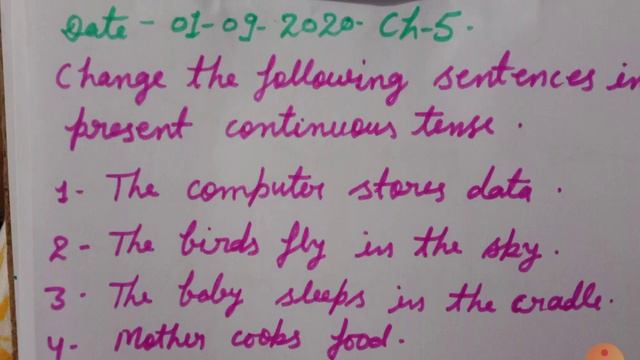 Date - 01-09-2020. Ch-5.
Change the following sentences in
present continuous tense.
1- The computer stores data.
2- The birds fly in the sky.
3. The baby sleeps in the cradle.
4- Mother cooks food.